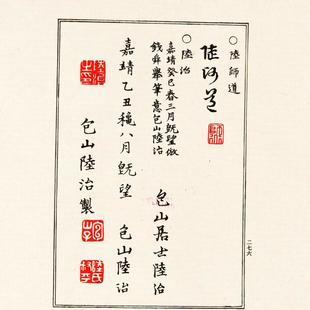 ○陸師道
陸師道
○陸治
嘉靖癸巳春三月旣望倣
錢舜舉筆意包山陸治
包山居士陸治
嘉靖乙丑穐八月旣望　包山陸治
包山陸治製
陸氏叔平
二七六